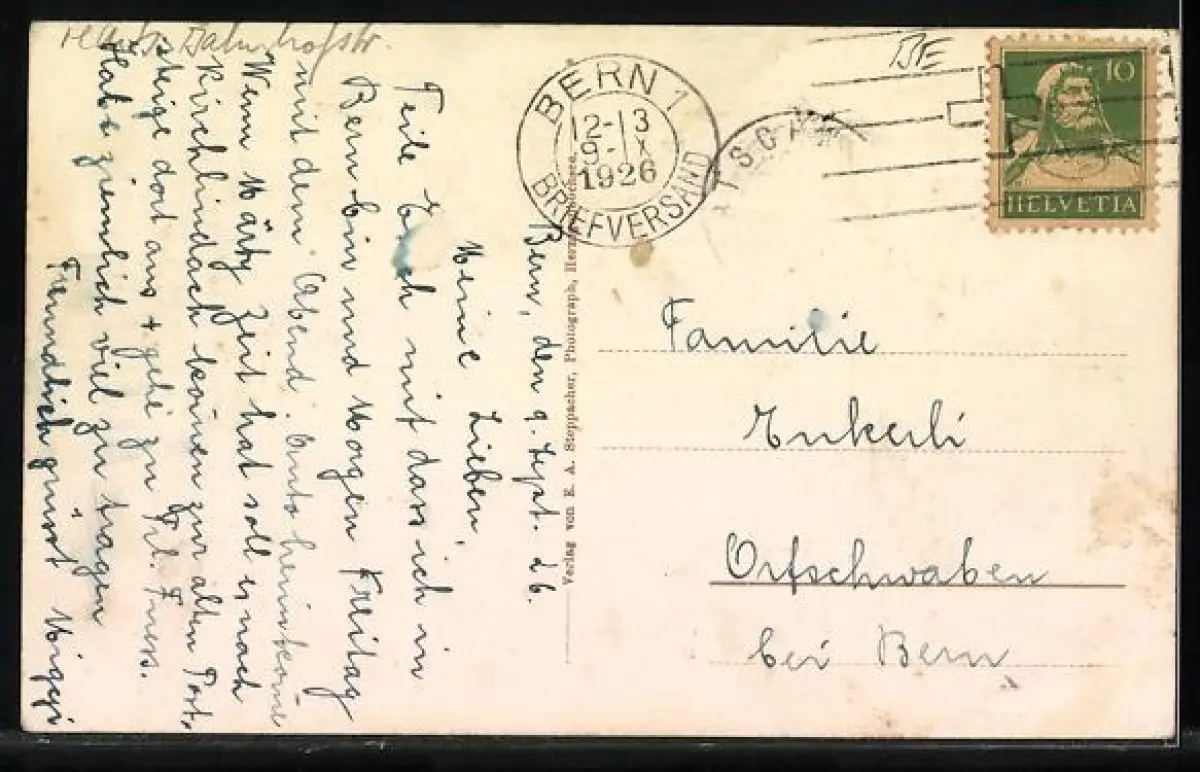 Bahnhofstr.
Bern, den 9. Sept. 26.
Meine Lieben,
Teile Euch mit dass ich in
Bern bin und Morgen Freitag
mit dem Abend Auto heimkome
Wenn Märty Zeit hat soll er nach
Kirchlindach komen zur alten Post.
steige dort aus + gehe zu Frl. Fuess.
Habe ziemlich viel zu tragen
Freundlich grüsst Miggi
Verlag von E. A. Steppacher, Photograph,
BERN 1
12-13
9-IX
1926
BRIEFVERSAND
BE
10
HELVETIA
Familie
Enkerli
Ortschwaben
bei Bern